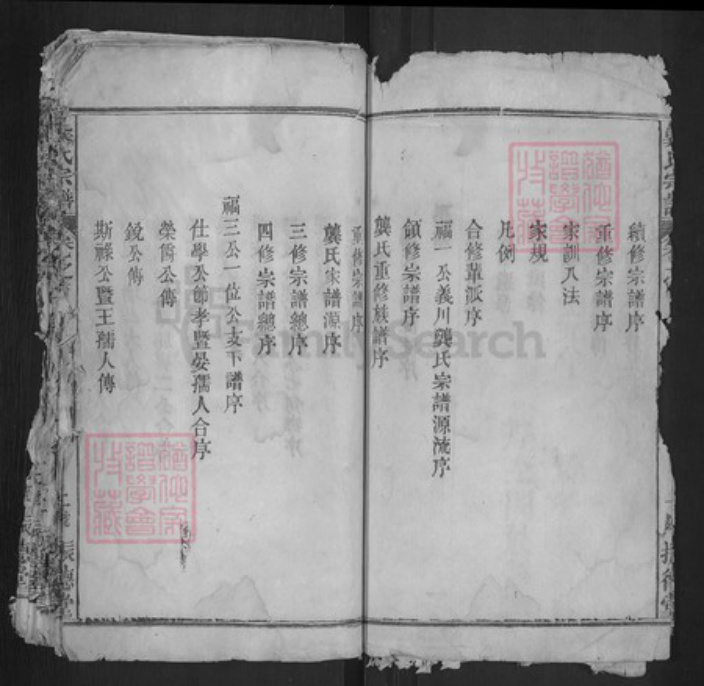 續修宗譜序
重修宗譜序
家訓八法
家規
凡例
合修輩派序
福一公義川龔氏宗譜源流序
領修宗譜序
龔氏重修族譜序
重修宗譜序
龔氏家譜源序
三修宗譜總序
四修宗譜總序
福三公一位公支下譜序
仕學公節孝暨晏孺人合序
榮僑公傳
銳公傳
斯祿公暨王孺人傳
氏宗譜
FamilySearch